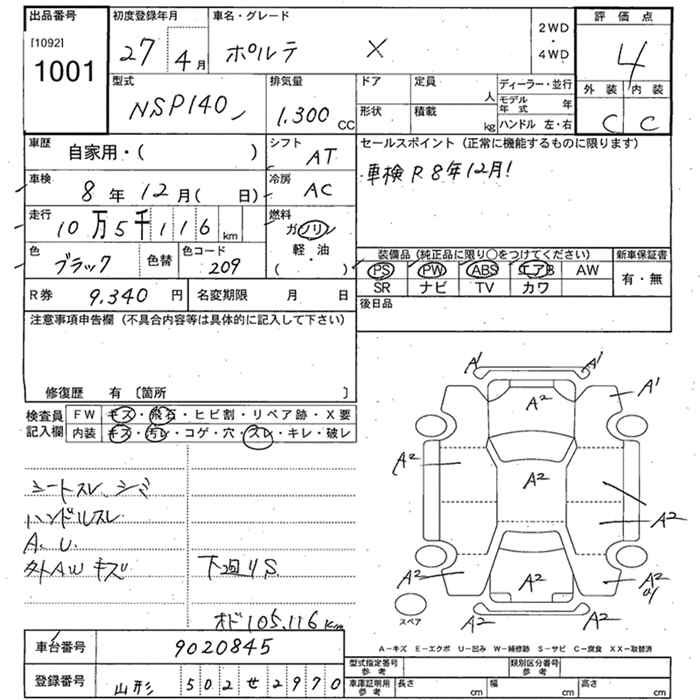 出品番号
[1092]
1001
初度登録年月
27年4月
車名・グレード
ポルテ X
2WD
・
4WD
評価点
4
外装 内装
C C
型式
NSP140
排気量
1.300cc
ドア
定員
人
形状
積載
kg
ディーラー・並行
モデル年式 年
ハンドル 左・右
車歴
自家用・( )
シフト
AT
車検
8年12月( 日)
冷房
AC
走行
10万5千116km
燃料
ガソリン
軽・油
( )
色
ブラック
色替
色コード
209
R券 9.340円
名変期限 月 日
セールスポイント(正常に機能するものに限ります)
車検R8年12月!
装備品(純正品に限り○をつけてください)
PS PW ABS エアB AW
SR ナビ TV カワ
新車保証書
有・無
後日品
注意事項申告欄(不具合内容等は具体的に記入して下さい)
修復歴 有〔箇所 〕
検査員記入欄
FW キズ・飛石・ヒビ割・リペア跡・X要
内装 キズ・汚レ・コゲ・穴・スレ・キレ・破レ
シートスレ、シミ
ハンドルスレ
A.U.
外AWキズ
下廻りS
オド105,116km
A1 A1
A2 A1
A2 A2
A2
A2 A2 A2
A2 A2
スペア
A-キズ E-エクボ U-凹み W-補修跡 S-サビ C-腐食 XX-取替済
車台番号 9020845
登録番号 山形 502せ2970
型式指定番号 参考
類別区分番号 参考
車庫証明用 参考
長さ cm
幅 cm
高さ cm